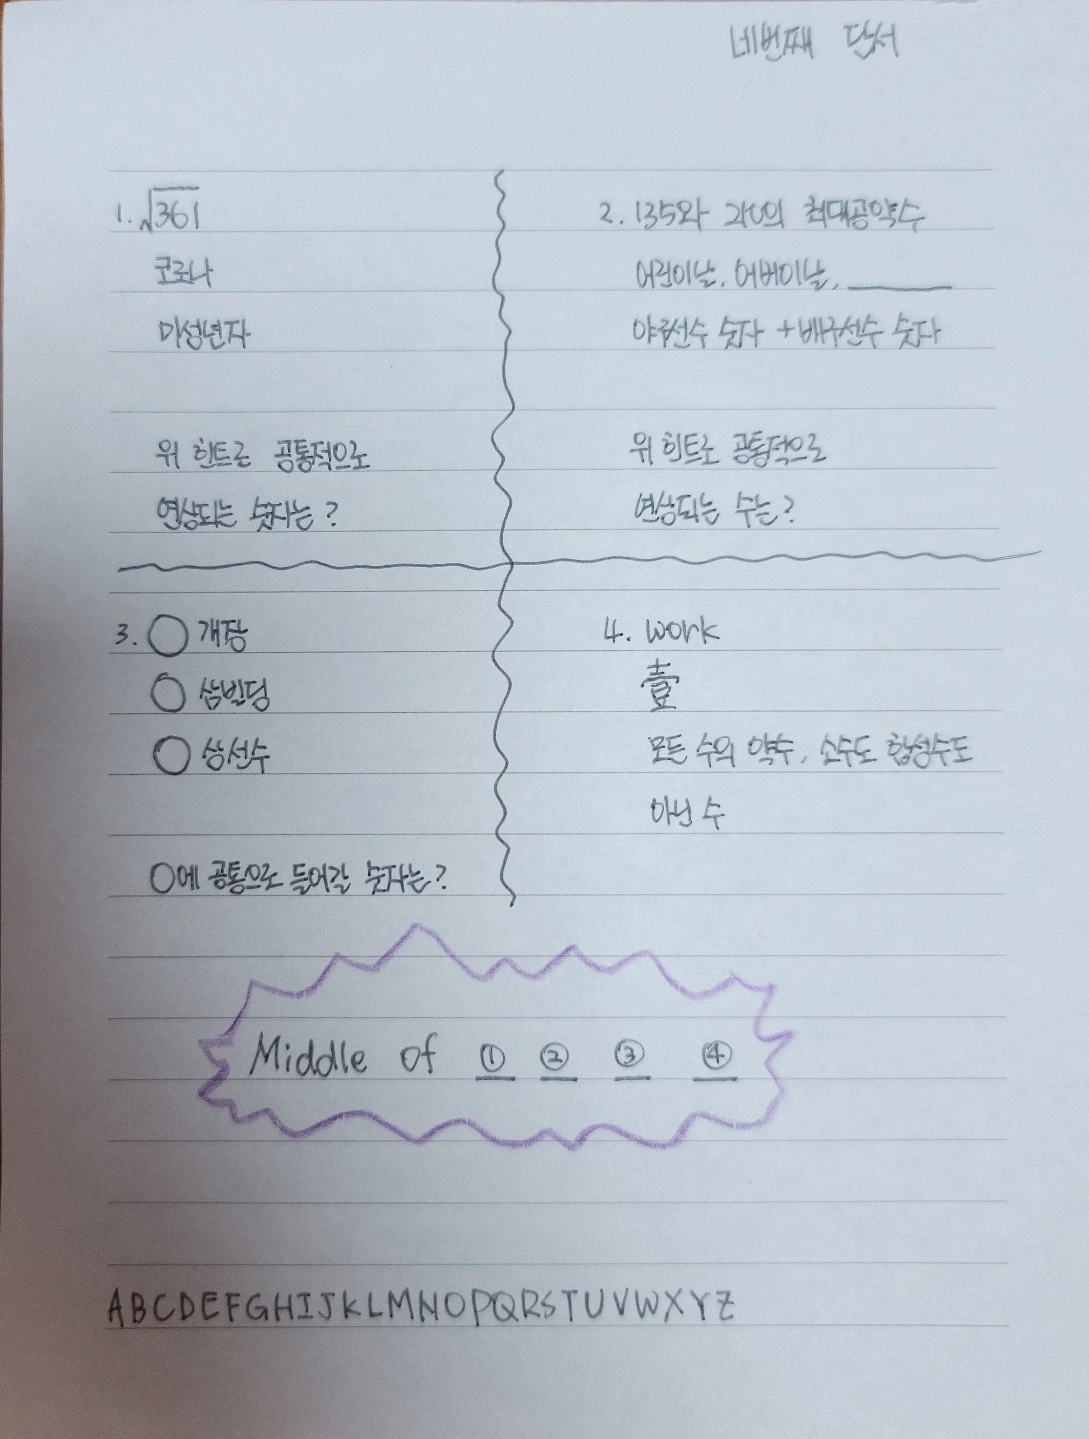 네번째 단서
1. √361
코로나
미성년자
위 힌트로 공통적으로
연상되는 숫자는?
2. 135와 210의 최대공약수
어린이날, 어버이날, ______
야구선수 숫자 + 배구선수 숫자
위 힌트로 공통적으로
연상되는 수는?
3. ○개장
○삼빌딩
○상선수
○에 공통으로 들어갈 숫자는?
4. work
壹
모든 수의 약수, 소수도 합성수도
아닌 수
Middle of ① ② ③ ④
ABCDEFGHIJKLMNOPQRSTUVWXYZ